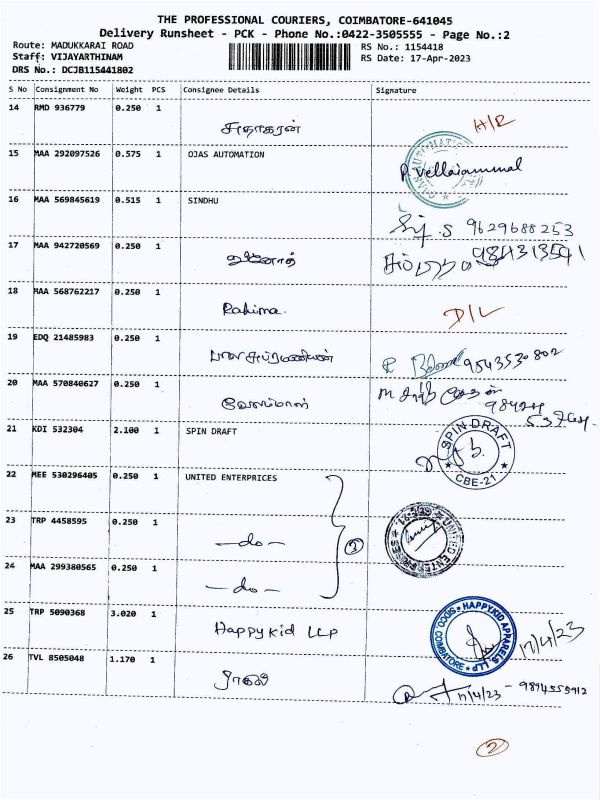 THE PROFESSIONAL COURIERS, COIMBATORE-641045
Delivery Runsheet - PCK - Phone No.:0422-3505555 - Page No.:2
Route: MADUKKARAI ROAD RS No.: 1154418
Staff: VIJAYARTHINAM RS Date: 17-Apr-2023
DRS No.: DCJB115441802
S No Consignment No Weight PCS Consignee Details Signature
14 RMD 936779 0.250 1
சுதாகரன் H/R
15 MAA 292097526 0.575 1 OJAS AUTOMATION
P. Vellaiammal
16 MAA 569845619 0.515 1 SINDHU
S 9629688253
17 MAA 942720569 0.250 1
வினோத்
18 MAA 568762217 0.250 1
Rahima. D/L
19 EDQ 21485983 0.250 1
பாலசுப்ரமணியன் 9543530802
20 MAA 570840627 0.250 1
வேலம்மாள்
21 KDI 532304 2.100 1 SPIN DRAFT
SPIN DRAFT
CBE-21
22 MEE 530296405 0.250 1 UNITED ENTERPRICES
23 TRP 4458595 0.250 1
-do- 3
UNITED ENTERPRISES
24 MAA 299380565 0.250 1
-do-
25 TRP 5090368 3.020 1
Happykid LLP 17/4/23
HAPPYKID APPARELS LLP
SIDCO, COIMBATORE
26 TVL 8505048 1.170 1
17/4/23 - 9894555912
2